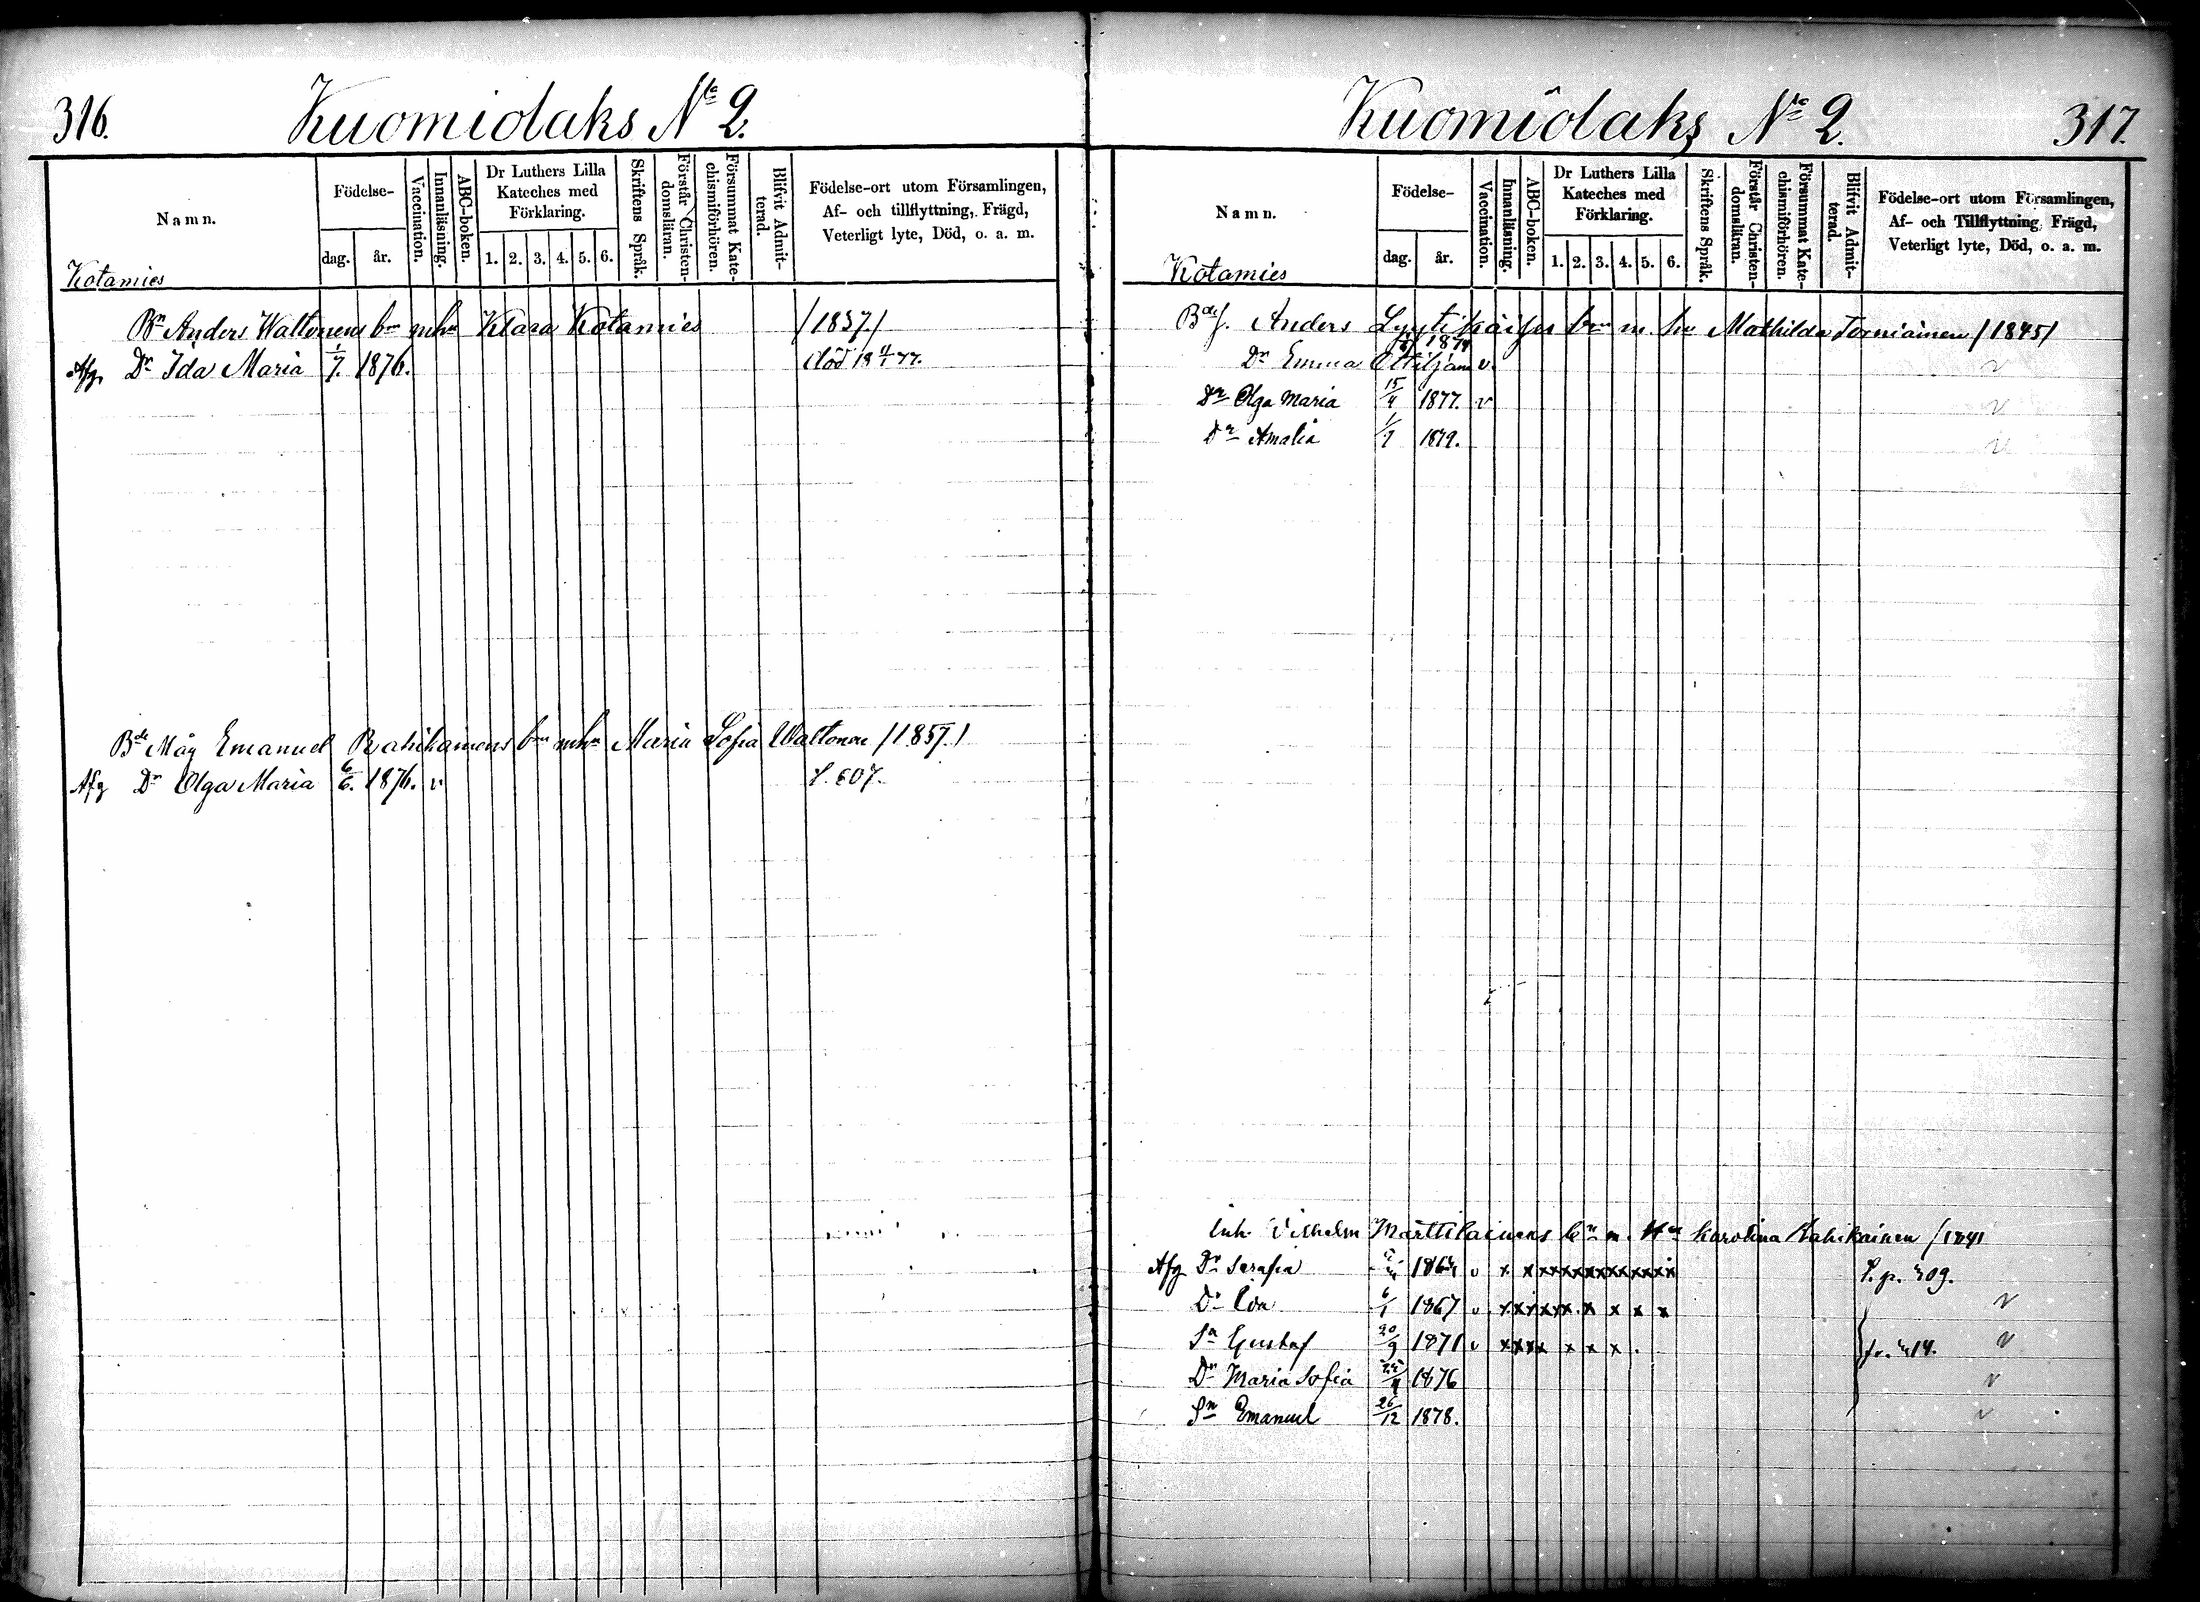 316.
Kuomiolaks No 2.
Namn.
Födelse-
dag.
år.
Vaccination.
Innanläsning.
ABC-boken.
Dr Luthers Lilla
Kateches med
Förklaring.
1. 2. 3. 4. 5. 6.
Skriftens Språk.
Förstår Christen-
domsläran.
Försummat Kate-
chismiförhören.
Blifvit Admit-
terad.
Födelse-ort utom Församlingen,
Af- och tillflyttning, Frägd,
Veterligt lyte, Död, o. a. m.
Kotamies
Bn Anders Waltonens bn mhu Klara Kotamies /1837/
Afg Dr Ida Maria 1/7. 1876. död 18 4/1 77.
Bde Måg Emanuel Rahikainens bn mhu Maria Sofia Waltonen /1857./
Afg Dr Olga Maria 6/6. 1876. v S. 607.
Kuomiolaks No 2.
317.
Namn.
Födelse-
dag.
år.
Vaccination.
Innanläsning.
ABC-boken.
Dr Luthers Lilla
Kateches med
Förklaring.
1. 2. 3. 4. 5. 6.
Skriftens Språk.
Förstår Christen-
domsläran.
Försummat Kate-
chismiförhören.
Blifvit Admit-
terad.
Födelse-ort utom Församlingen,
Af- och Tillflyttning, Frägd,
Veterligt lyte, Död, o. a. m.
Kotamies
Anders bn m. hu Mathilda Torniainen /1845/
Dr Emma v v
Dr Olga Maria 15/4 1877. v v
Dr Amalia 1/7 1879. v
Inh. Vilhelm Marttikainens bn m. Hu Karolina Rahikainen /1841
Afg Dr Serafia v x x x x x x x x x x x S. p. 309.
Dr Ida 6/1 1867 v x x x x x x x x x v
Sn Gustaf 20/9 1871 v x x x x x x x . v
Dr Maria Sofia 1876 v
Sn Emanuel 26/12 1878. v